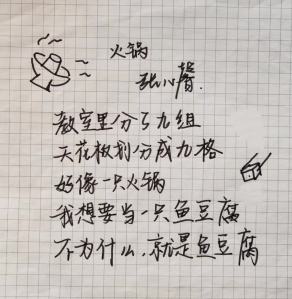 火锅
张心馨.
教室里分了九组
天花板划分成九格
好像一只火锅
我想要当一只鱼豆腐
不为什么,就是鱼豆腐